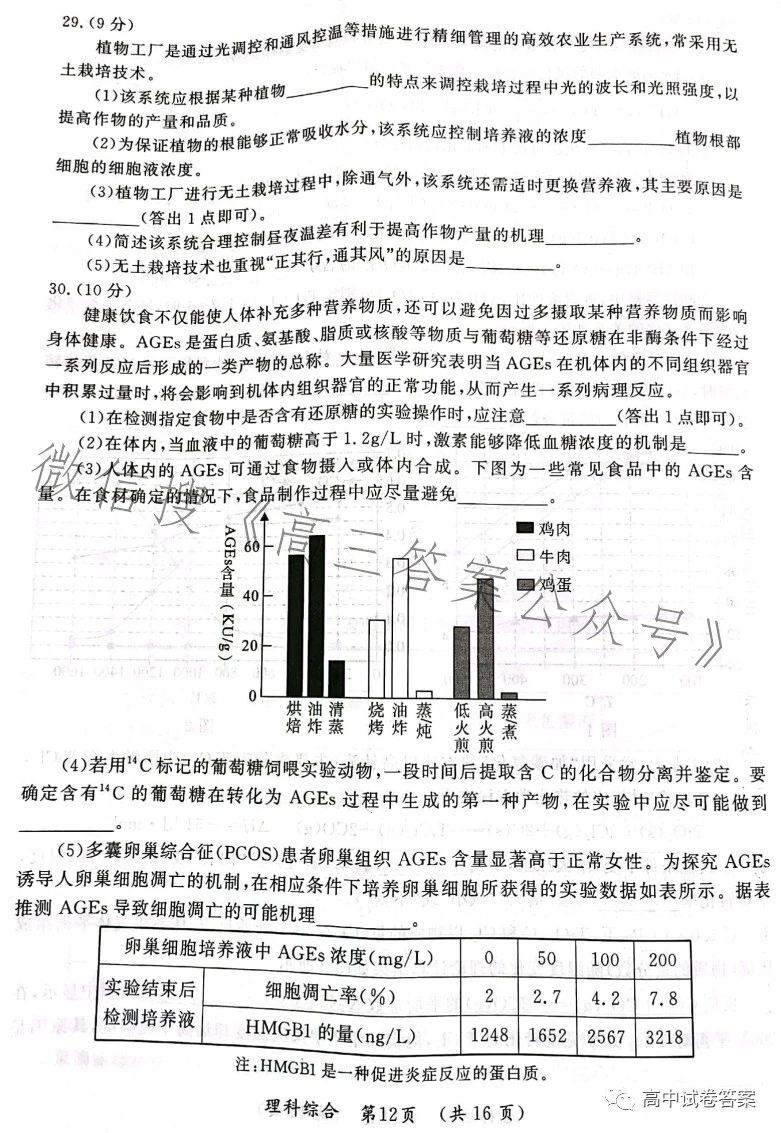 29.(9分)
植物工厂是通过光调控和通风控温等措施进行精细管理的高效农业生产系统,常采用无
土栽培技术。
(1)该系统应根据某种植物________的特点来调控栽培过程中光的波长和光照强度,以
提高作物的产量和品质。
(2)为保证植物的根能够正常吸收水分,该系统应控制培养液的浓度________植物根部
细胞的细胞液浓度。
(3)植物工厂进行无土栽培过程中,除通气外,该系统还需适时更换营养液,其主要原因是
________(答出1点即可)。
(4)简述该系统合理控制昼夜温差有利于提高作物产量的机理________。
(5)无土栽培技术也重视“正其行,通其风”的原因是________。
30.(10分)
健康饮食不仅能使人体补充多种营养物质,还可以避免因过多摄取某种营养物质而影响
身体健康。AGEs是蛋白质、氨基酸、脂质或核酸等物质与葡萄糖等还原糖在非酶条件下经过
一系列反应后形成的一类产物的总称。大量医学研究表明当AGEs在机体内的不同组织器官
中积累过量时,将会影响到机体内组织器官的正常功能,从而产生一系列病理反应。
(1)在检测指定食物中是否含有还原糖的实验操作时,应注意________(答出1点即可)。
(2)在体内,当血液中的葡萄糖高于1.2g/L时,激素能够降低血糖浓度的机制是________。
(3)人体内的AGEs可通过食物摄入或体内合成。下图为一些常见食品中的AGEs含
量。在食材确定的情况下,食品制作过程中应尽量避免________。
微信搜《高三答案公众号》
AGEs含量(KU/g)
60
40
20
0
鸡肉
牛肉
鸡蛋
烘焙 油炸 清蒸 烧烤 油炸 蒸炖 低火煎 高火煎 蒸煮
(4)若用¹⁴C标记的葡萄糖饲喂实验动物,一段时间后提取含C的化合物分离并鉴定。要
确定含有¹⁴C的葡萄糖在转化为AGEs过程中生成的第一种产物,在实验中应尽可能做到
________。
(5)多囊卵巢综合征(PCOS)患者卵巢组织AGEs含量显著高于正常女性。为探究AGEs
诱导人卵巢细胞凋亡的机制,在相应条件下培养卵巢细胞所获得的实验数据如表所示。据表
推测AGEs导致细胞凋亡的可能机理________。
卵巢细胞培养液中AGEs浓度(mg/L) 0 50 100 200
实验结束后检测培养液 细胞凋亡率(%) 2 2.7 4.2 7.8
HMGB1的量(ng/L) 1248 1652 2567 3218
注:HMGB1是一种促进炎症反应的蛋白质。
理科综合 第12页 (共16页)
高中试卷答案